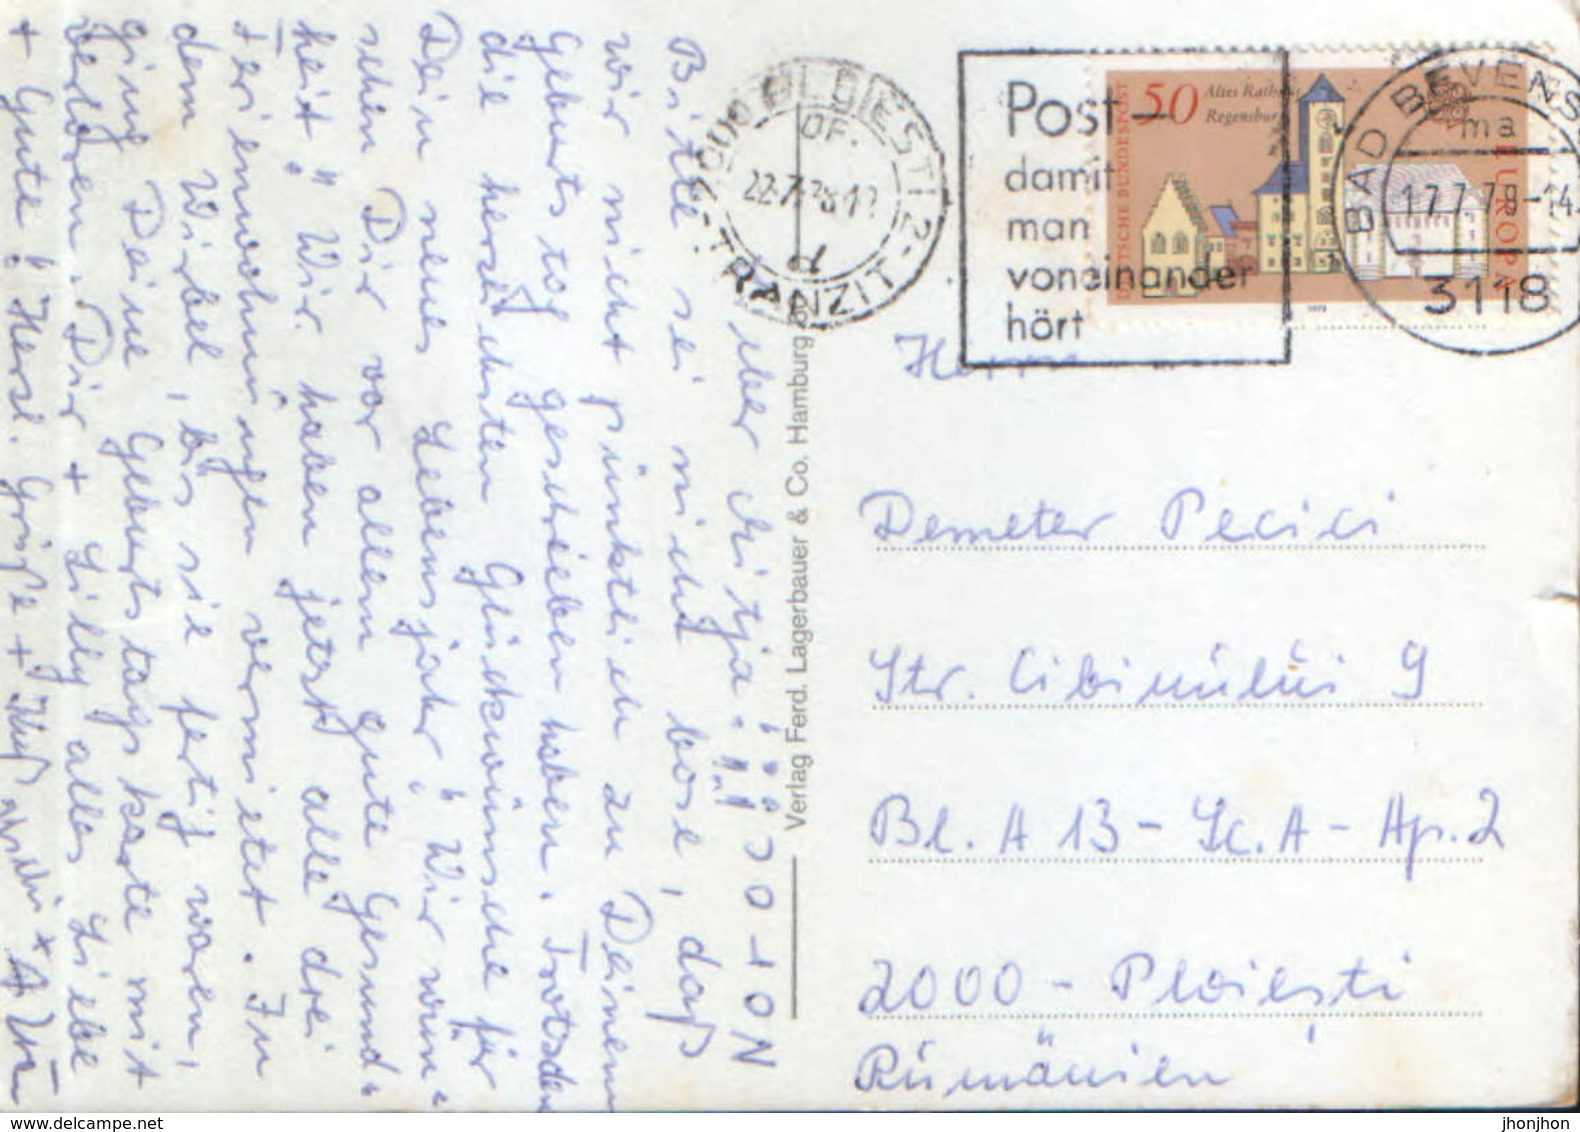 Lieber Mitja!!!
Bitte sei nicht böse, daß
wir nicht pünktlich zu Deinem
Geburtstag geschrieben haben. Trotzdem
die herzlichsten Glückwünsche für
Dein neues Lebensjahr! Wir wün-
schen Dir vor allem gute Gesund-
heit! Wir haben jetzt alle drei
Ferienwohnungen vermietet. In
dem Wirbel, bis sie fertig waren,
ging Deine Geburtstagskarte mit
verloren. Dir + Lilly alles Liebe
+ Gute! Herzl. Grüße + Kuß
Verlag Ferd. Lagerbauer & Co. Hamburg
2000 PLOIESTI 2
OF.
22.7.78.12
d
-TRANZIT-
Post-
damit
man
voneinander
hört
DEUTSCHE BUNDESPOST
50
Altes Rathaus
Regensburg
EUROPA
1978
BAD BEVENSEN
ma
17.7.78-14
3118
Herrn
Demeter Pecici
Str. Cibinului 9
Bl. A 13 - Sc. A - Ap. 2
2000 - Ploiești
Rumänien
www.delcampe.net
jhonjhon